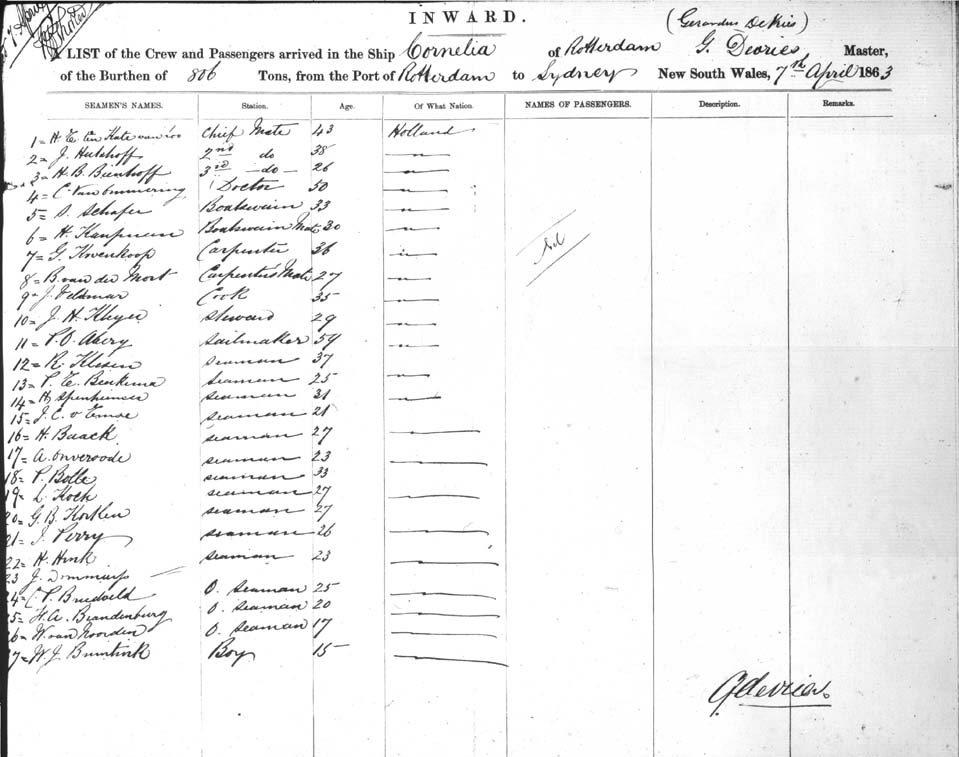 INWARD.
(Gerardus De Vries)
A LIST of the Crew and Passengers arrived in the Ship Cornelia of Rotterdam G. Devries Master,
of the Burthen of 806 Tons, from the Port of Rotterdam to Sydney New South Wales, 7th April 1863
SEAMEN'S NAMES. Station. Age. Of What Nation. NAMES OF PASSENGERS. Description. Remarks.
1= H. E. ten Kate Chief Mate 43 Holland
2= J. Hulshoff 2nd do 38 — " —
3= H. B. Bienhoff 3rd - do - 26 — " —
4= C. van Ommering Doctor 50 — " —
5= S. Schafer Boatswain 33 — " —
6= H. Boatswain Mate 30 — " —
7= G. Kwenkoop Carpenter 36 — " —
8= B. van der Mort Carpenter's Mate 27 — " —
9= J. Veldmar Cook 35 — " —
10= J. H. Kleyer Steward 29 — " —
11= P. O. Abery Sailmaker 59 — " —
12= R. Klesen seaman 37
13= P. E. Beukema seaman 25 — " —
14= H. seaman 31 — " —
15= J. C. v seaman 21
16= H. Baack seaman 27
17= A. Onveroode seaman 23
18= P. Bolle seaman 33
19= L. Koch seaman 27
20= G. B. seaman 27
21= J. Perry seaman 26
22= H. Hink seaman 23
23 J.
24= C P. Bredveld O. Seaman 25
25= H. A. Brandenburg O. Seaman 20
26= W. van Noorden O. Seaman 17
27= W. J. Boy 15
G devries.